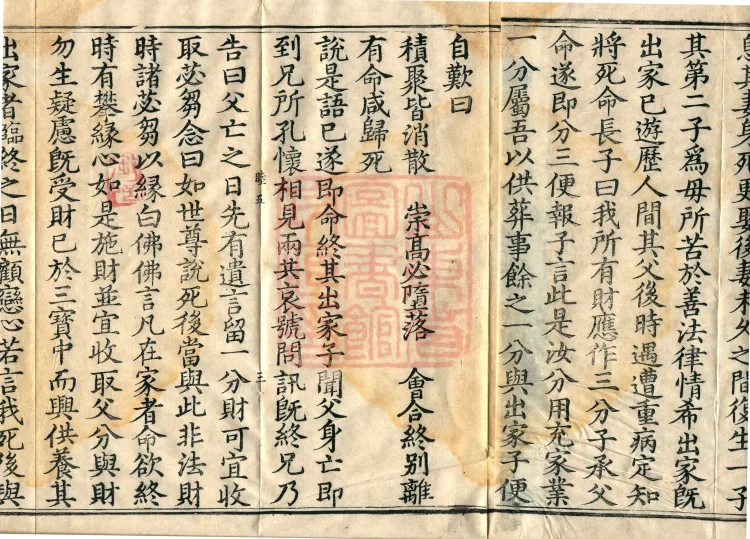 其妻身死更娶後妻未久之間後生一子
其第二子爲母所苦於善法律情希出家旣
出家已遊歷人間其父後時遇遭重病定知
將死命長子曰我所有財應作三分子承父
命遂即分三便報子言此是汝分用充家業
一分屬吾以供葬事餘之一分與出家子便
自歎曰
積聚皆消散　崇高必墮落　會合終别離
有命咸歸死
說是語已遂即命終其出家子聞父身亡即
到兄所孔懷相見兩共哀號問訊旣終兄乃
五　三
告曰父亡之日先有遺言留一分財可宜收
取苾芻念曰如世尊說死後當與此非法財
時諸苾芻以緣白佛佛言凡在家者命欲終
時有攀緣心如是施財並宜收取父分與財
勿生疑慮旣受財已於三寶中而興供養其
出家者臨終之日無顧戀心若言我死後與